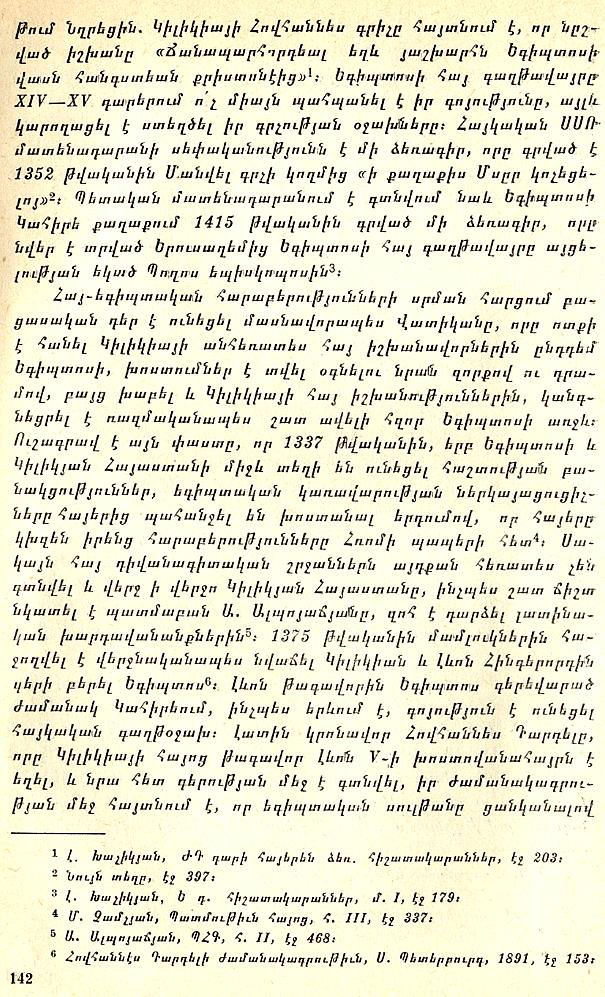 թում նղրեցին. Կիլիկիայի Հովհաննես գրիչը հայտնում է, որ նըշ-
ված իշխանը «Ճանապարհորդեալ եղև յաշխարհն Եգիպտոսի
վասն հանգստեան քրիստոնէից»¹։ Եգիպտոսի հայ գաղթավայրը
XIV—XV դարերում ո՛չ միայն պահպանել է իր գոյությունը, այլև
կարողացել է ստեղծել իր գրչության օջախները։ Հայկական ՍՍՌ
մատենադարանի սեփականությունն է մի ձեռագիր, որը գրված է
1352 թվականին Մանվել գրչի կողմից «ի քաղաքիս Մսըր կոչեցե-
լոյ»²։ Պետական մատենադարանում է գտնվում նաև Եգիպտոսի
Կահիրե քաղաքում 1415 թվականին գրված մի ձեռագիր, որը
նվեր է տրված Երուսաղեմից Եգիպտոսի հայ գաղթավայրը այցե-
լության եկած Պողոս եպիսկոպոսին³։
Հայ-եգիպտական հարաբերությունների սրման հարցում բա-
ցասական դեր է ունեցել մասնավորապես Վատիկանը, որը ոտքի
է հանել Կիլիկիայի անհեռատես հայ իշխանավորներին ընդդեմ
Եգիպտոսի, խոստումներ է տվել օգնելու նրան զորքով ու դրա-
մով, բայց խաբել և Կիլիկիայի հայ իշխանություններին, կանգ-
նեցրել է ռազմականապես շատ ավելի հզոր Եգիպտոսի առջև։
Ուշագրավ է այն փաստը, որ 1337 թվականին, երբ Եգիպտոսի և
Կիլիկյան Հայաստանի միջև տեղի են ունեցել հաշտության բա-
նակցություններ, եգիպտական կառավարության ներկայացուցիչ-
ները հայերից պահանջել են խոստանալ երդումով, որ հայերը
կխզեն իրենց հարաբերությունները Հռոմի պապերի հետ⁴։ Սա-
կայն հայ դիվանագիտական շրջաններն այդքան հեռատես չեն
գտնվել և վերջ ի վերջո Կիլիկյան Հայաստանը, ինչպես շատ ճիշտ
նկատել է պատմաբան Ա. Ալպոյաճյանը, զոհ է դարձել լատինա-
կան խարդավանանքներին⁵։ 1375 թվականին մամլուկներին հա-
ջողվել է վերջնականապես նվաճել Կիլիկիան և Լևոն Հինգերորդին
գերի բերել Եգիպտոս⁶։ Լևոն թագավորին Եգիպտոս գերեվարած
ժամանակ Կահիրեում, ինչպես երևում է, գոյություն է ունեցել
հայկական գաղթօջախ։ Լատին կրոնավոր Հովհաննես Դարդելը,
որը Կիլիկիայի հայոց թագավոր Լևոն V-ի խոստովանահայրն է
եղել, և նրա հետ գերության մեջ է գտնվել, իր ժամանակագրու-
թյան մեջ հայտնում է, որ եգիպտական սուլթանը ցանկանալով
¹ Լ. Խաչիկյան, ԺԴ դարի հայերեն ձեռ. հիշատակարաններ, էջ 203։
² Նույն տեղը, էջ 397։
³ Լ. Խաչիկյան, Ե դ. հիշատակարաններ, մ. I, էջ 179։
⁴ Մ. Չամչյան, Պատմութիւն հայոց, հ. III, էջ 337։
⁵ Ա. Ալպոյաճյան, ՊՀԳ, հ. II, էջ 468։
⁶ Հովհաննէս Դարդելի ժամանակագրութիւն, Ս. Պետերբուրգ, 1891, էջ 153։
142